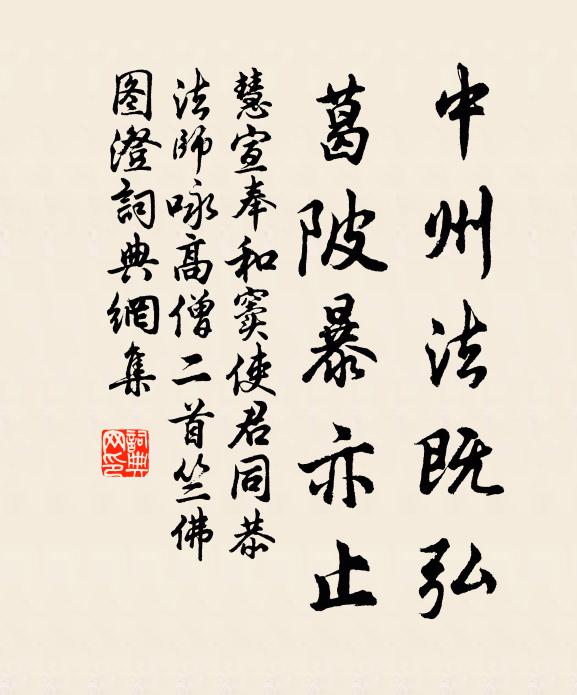 中州法既弘
葛陂暴亦止
慧宣奉和窦使君同恭
法師咏高僧二首竺佛
图澄詞典網集
詞典
网印